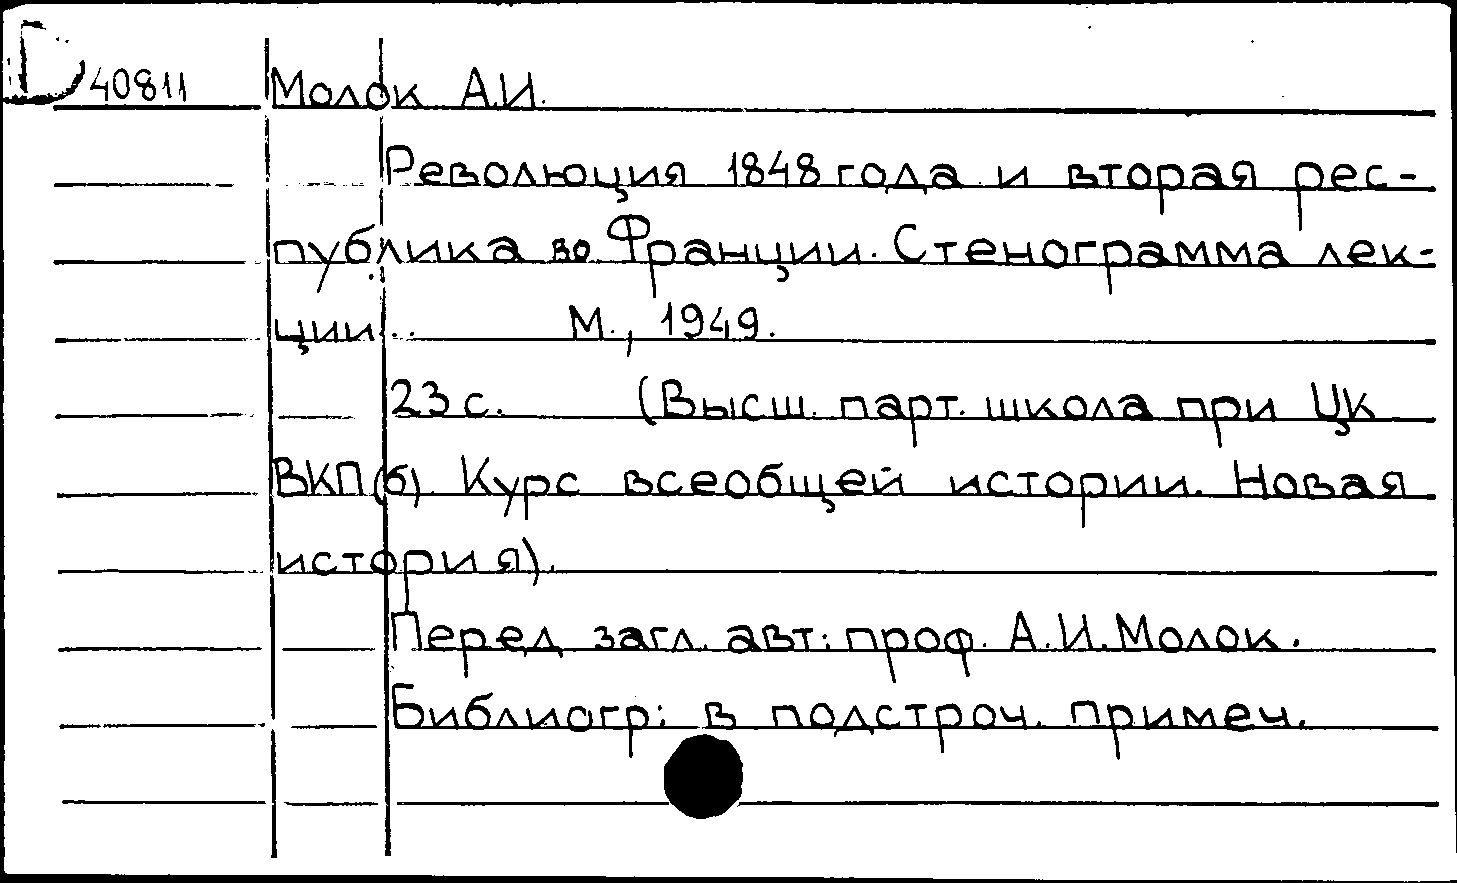 D 40811 Молок А.И.
Революция 1848 года и вторая рес-
публика во Франции. Стенограмма лек-
ции... М., 1949.
23 с. (Высш. парт. школа при ЦК
ВКП(б). Курс всеобщей истории. Новая
история).
Перед загл. авт.: проф. А.И. Молок.
Библиогр: в подстроч. примеч.